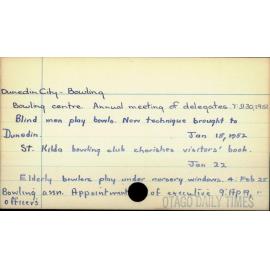 Dunedin City - Bowling
Bowling centre. Annual meeting of delegates.
Blind men play bowls. New technique brought to
Dunedin. Jan 18, 1952
St. Kilda bowling club cherishes visitors' book.
Jan 22
Elderly bowlers play under nursery windows. 4. Feb 25
Bowling assn. Appointment of executive 9. Apr
officers
OTAGO DAILY TIMES